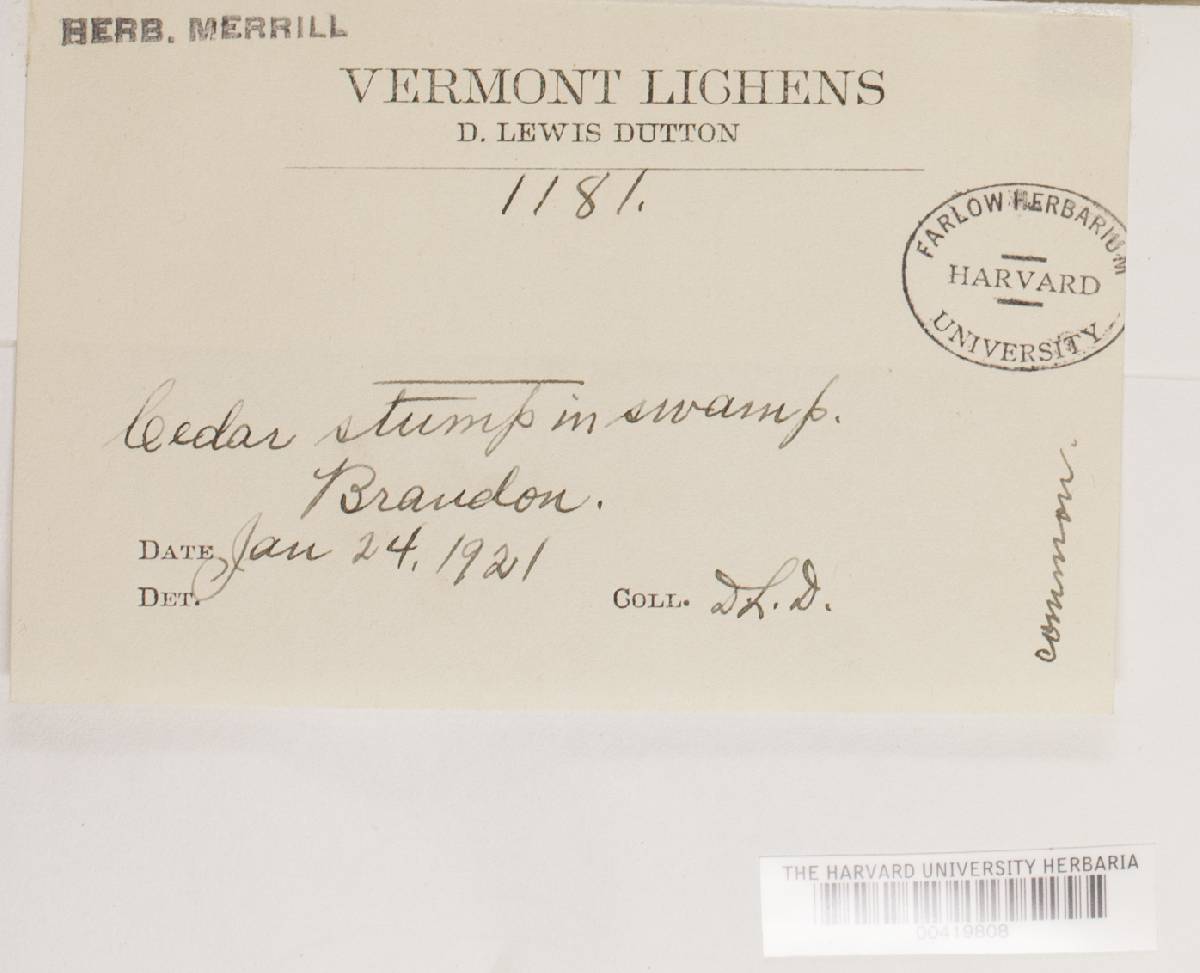 HERB. MERRILL
VERMONT LICHENS
D. LEWIS DUTTON
1181.
FARLOW HERBARIUM
HARVARD
UNIVERSITY
Cedar stump in swamp.
Brandon.
DATE Jan 24, 1921
DET.
COLL. D.L.D.
common.
THE HARVARD UNIVERSITY HERBARIA
00419808